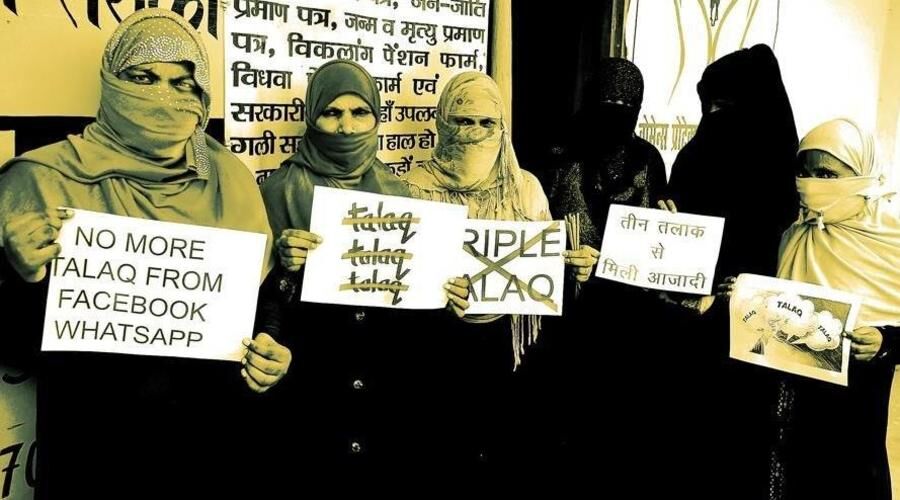 प्रमाण पत्र, जन्म व मृत्यु प्रमाण
पत्र, विकलांग पेंशन फार्म,
विधवा फार्म एवं
सरकारी हाँ उपलब
गली
हाल हो
NO MORE
TALAQ FROM
FACEBOOK
WHATSAPP
talaq
talaq
talaq
RIPLE
ALAQ
तीन तलाक
से
मिली आजादी
TALAQ
TALAQ
TALAQ